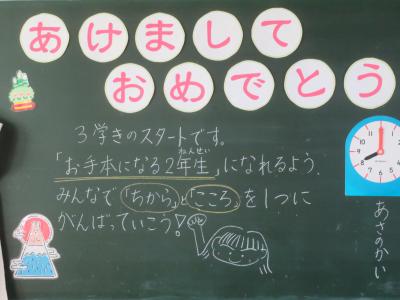 あけまして
おめでとう
3学きのスタートです。
「お手本になる2年生」になれるよう、
ねんせい
みんなで「ちから」と「こころ」を1つに
がんばっていこう!
あさのかい